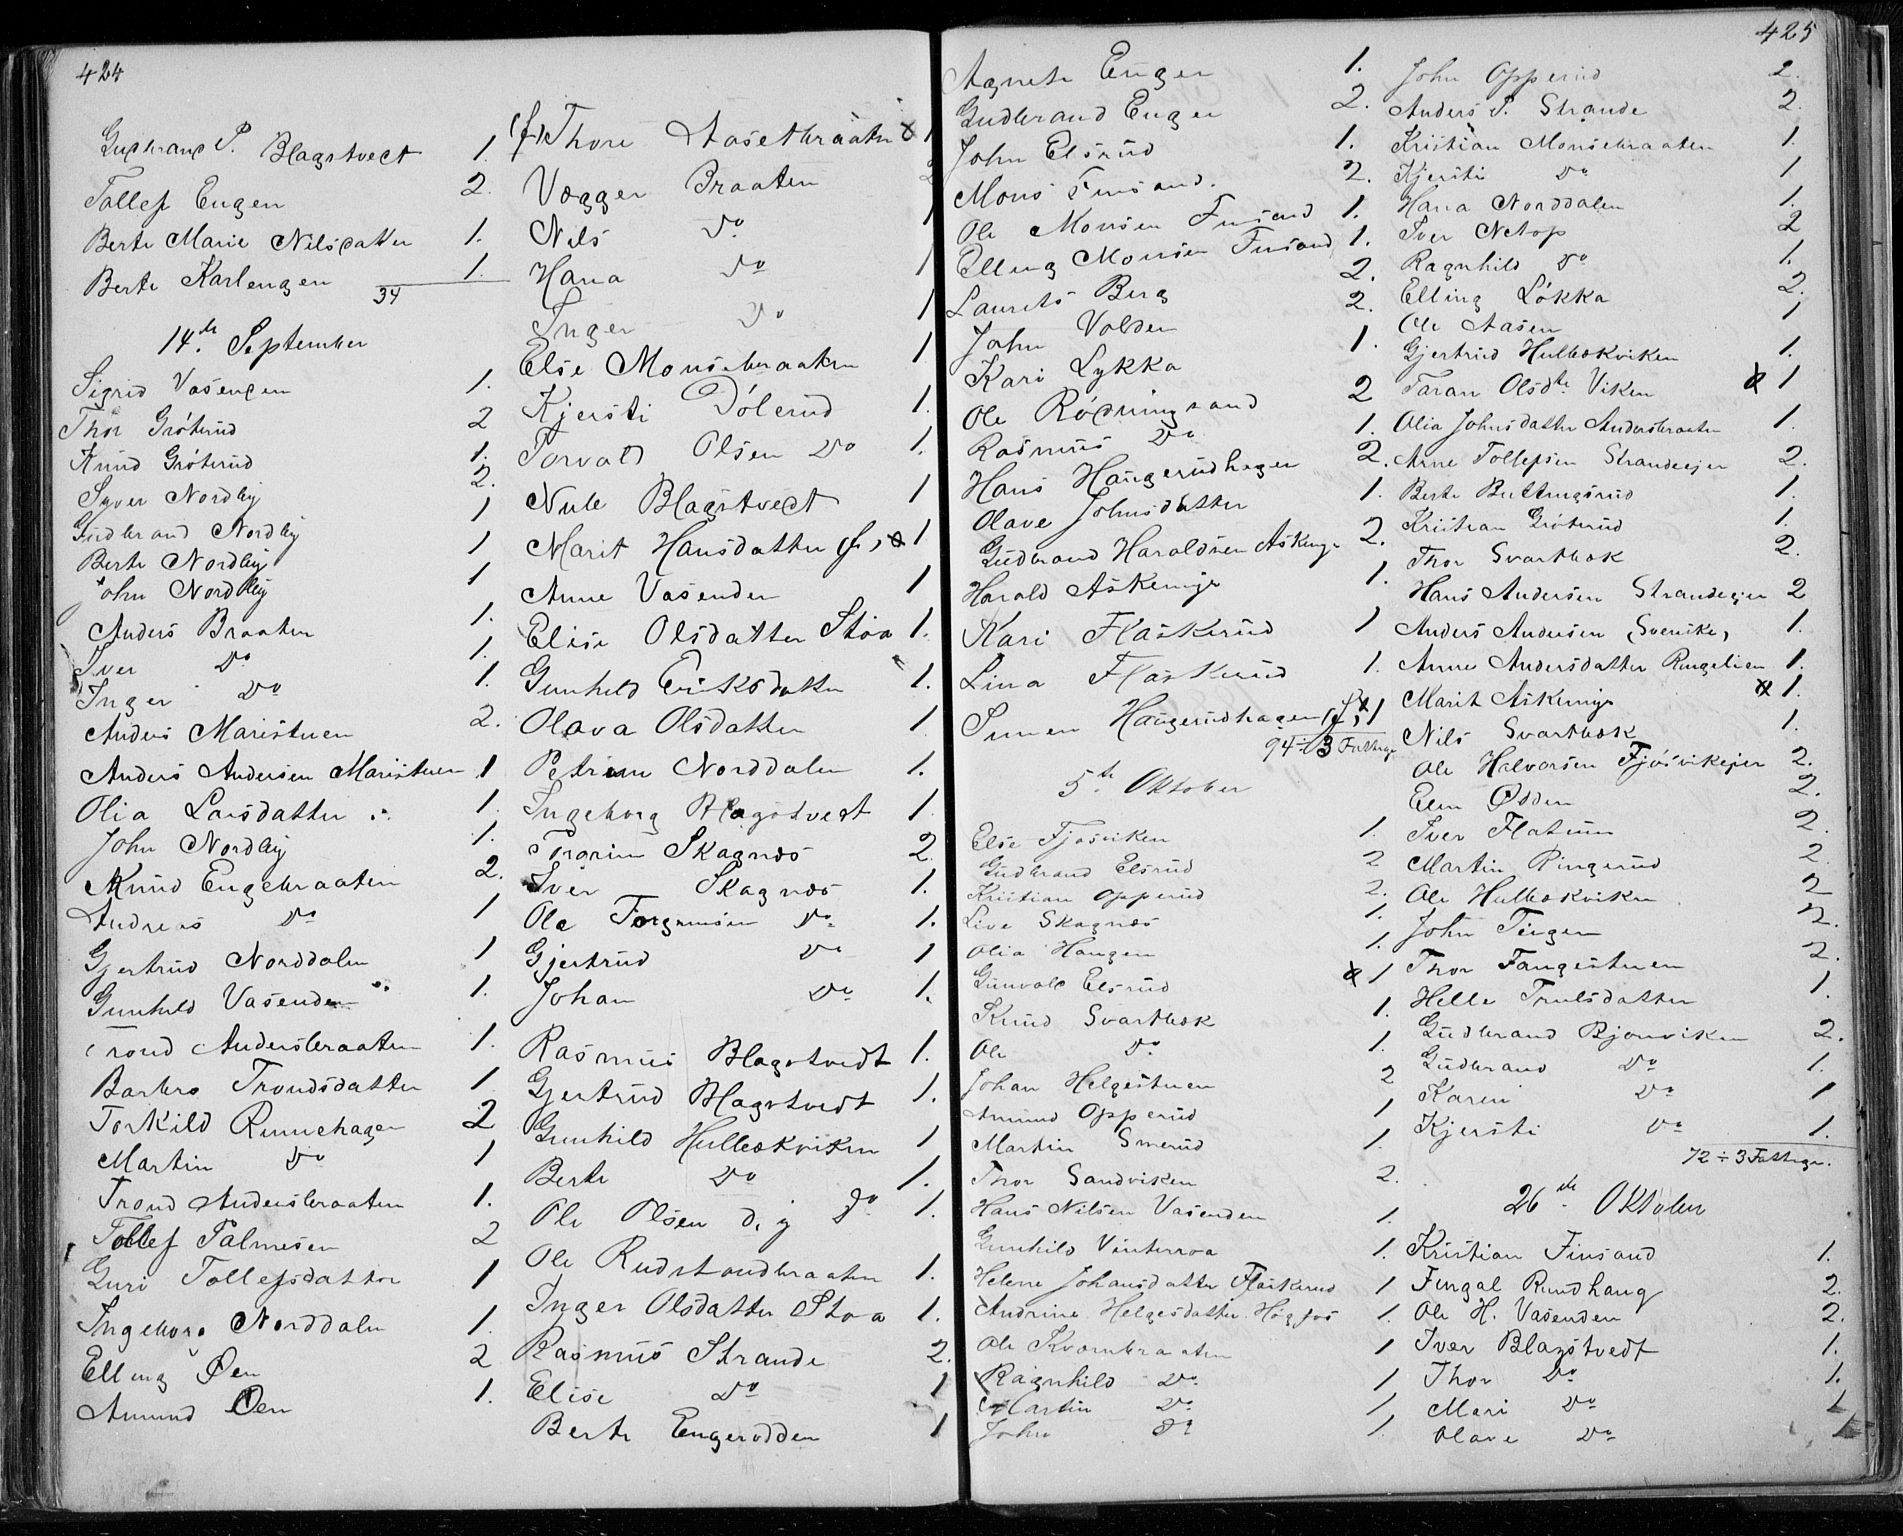 424
Gudbrand P. Blagstvedt 1.
Tollef Engen 2.
Berte Marie Nilsdatter 1.
Berte Karlengen 1.
34
14de September
Sigrid Vasenden 1.
Thor Gröterud 2
Knud Gröterud 1.
Syver Nordby 2.
Gudbrand Nordby 1
Berte Nordby 1
John Nordby 1
Anders Braaten 1.
Iver Do 1.
Inger Do 1.
Anders Maristuen 2.
Anders Andersen Maristuen 1
Olia Larsdatter 1.
John Nordby 1.
Knud Engebraaten 2.
Andreas Do 1
Gjertrud Norddalen 1
Gunhild Vasenden 1.
Trond Andersbraaten 1.
Barbro Trondsdatter 1
Torkild Runnehagen 2
Martin Do 1
Trond Andersbraaten 1.
Tollef Palmesen 2
Guri Tollefsdatter 1
Ingeborg Norddalen 1.
Elling Øen 2
Amund Øen 1.
(f) Thore Aasetbraaten x 1
Vegger Braaten 2
Nils Do 1
Hana Do 1
Inger Do 1
Else Monsebraaten 1
Kjersti Dölerud 1.
Torvald Olsen Do 1.
Nule Blagstvedt 1
Marit Hansdatter (f) x 1
Anne Vasenden 1
Elise Olsdatter Stöa 1.
Gunhild Eriksdatter 1.
Olava Olsdatter 1
Petrine Norddalen 1.
Ingeborg Blagstvedt 1
Thorine Skagnæs 2.
Iver Skagnæs 1.
Ole Torgrimsen Do 1.
Gjertrud Do 1
Johan Do 1.
Rasmus Blagstvedt 1.
Gjertrud Blagstvedt 1.
Gunhild Hullekviken 1
Berte Do 1.
Ole Olsen d. y Do 1.
Ole Rudstandbraaten 1.
Inger Olsdatter Stöa 1.
Rasmus Strande 2.
Elise Do 1
Berte Engerodden 1
425
Agnete Enger 1.
Gudbrand Enger 2.
John Elsrud 1.
Mons Finsand. 2.
Ole Monsen Finsand 1.
Elling Monsen Finsand 1.
Laurits Berg 2.
John Volden 2.
Kari Lykka 1.
Ole Rödningsand 2
Rasmus Do 1.
Hans Haugerudhagen 2.
Olave Johnsdatter 1.
Gudbrand Haraldsen Askeruge 2.
Harald Askerugje 1.
Kari Flaskerud 1
Lina Flaskerud 1.
Simen Haugerudhagen (f) x 1
94 ÷ 3 Fattige
5te Oktober
Else Fjösviken 1.
Gudbrand Elsrud 2
Kristian Opperud 2.
Live Skagnæs 1.
Olia Haugen 1.
Gunvald Elsrud x 1
Knud Svartbæk 1.
Ole Do 1.
Johan Helgestuen 2
Amund Opperud 1
Martin Smerud 1.
Thor Sandviken 2.
Hans Nilsen Vasenden 1.
Gunhild Vinterroa 1.
Helene Johansdatter Flaskerud 1
Andrine Helgesdatter Högfos 1.
Ole Kvernbraaten 1
Ragnhild Do 1
Martin Do 1
John Do 1.
John Opperud 2.
Anders P. Strande 2.
Kristian Monsebraaten 1.
Kjersti Do 1
Hana Norddalen 1.
Iver Netop 2
Ragnhild Do 1.
Elling Lökka 2.
Ole Aasen 1
Gjertrud Hullekviken 1.
Taran Olsdtr Viken x 1
Olia Johnsdatter Andersbraaten 1.
Arne Tollefsen Strandeejer 2.
Berte Buttingsrud 1.
Kristian Gröterud 1.
Thor Svartbæk 2.
Hans Andersen Strandeejer 2
Anders Andersen (Svenske) 1.
Anne Andersdatter Ringelien 1.
Marit Askerugje x 1.
Nils Svartbæk 1.
Ole Halvorsen Fjösvikejer 2.
Elen Ødden 2.
Iver Flatum 2.
Martin Ringerud 2
Ole Hullekviken 2
John Teigen 2.
Thor Fangestuen 2.
Helle Trulsdatter 1.
Gudbrand Bjonviken 2.
Gudbrand Do 1.
Karen Do 1
Kjersti Do 1.
72 ÷ 3 Fattige.
26de Oktober
Kristian Finsand 1.
Fingal Rundhaug 2.
Ole H. Vasenden 2.
Iver Blagstvedt 1.
Thor Do 1.
Mari Do 1
Olave Do 1